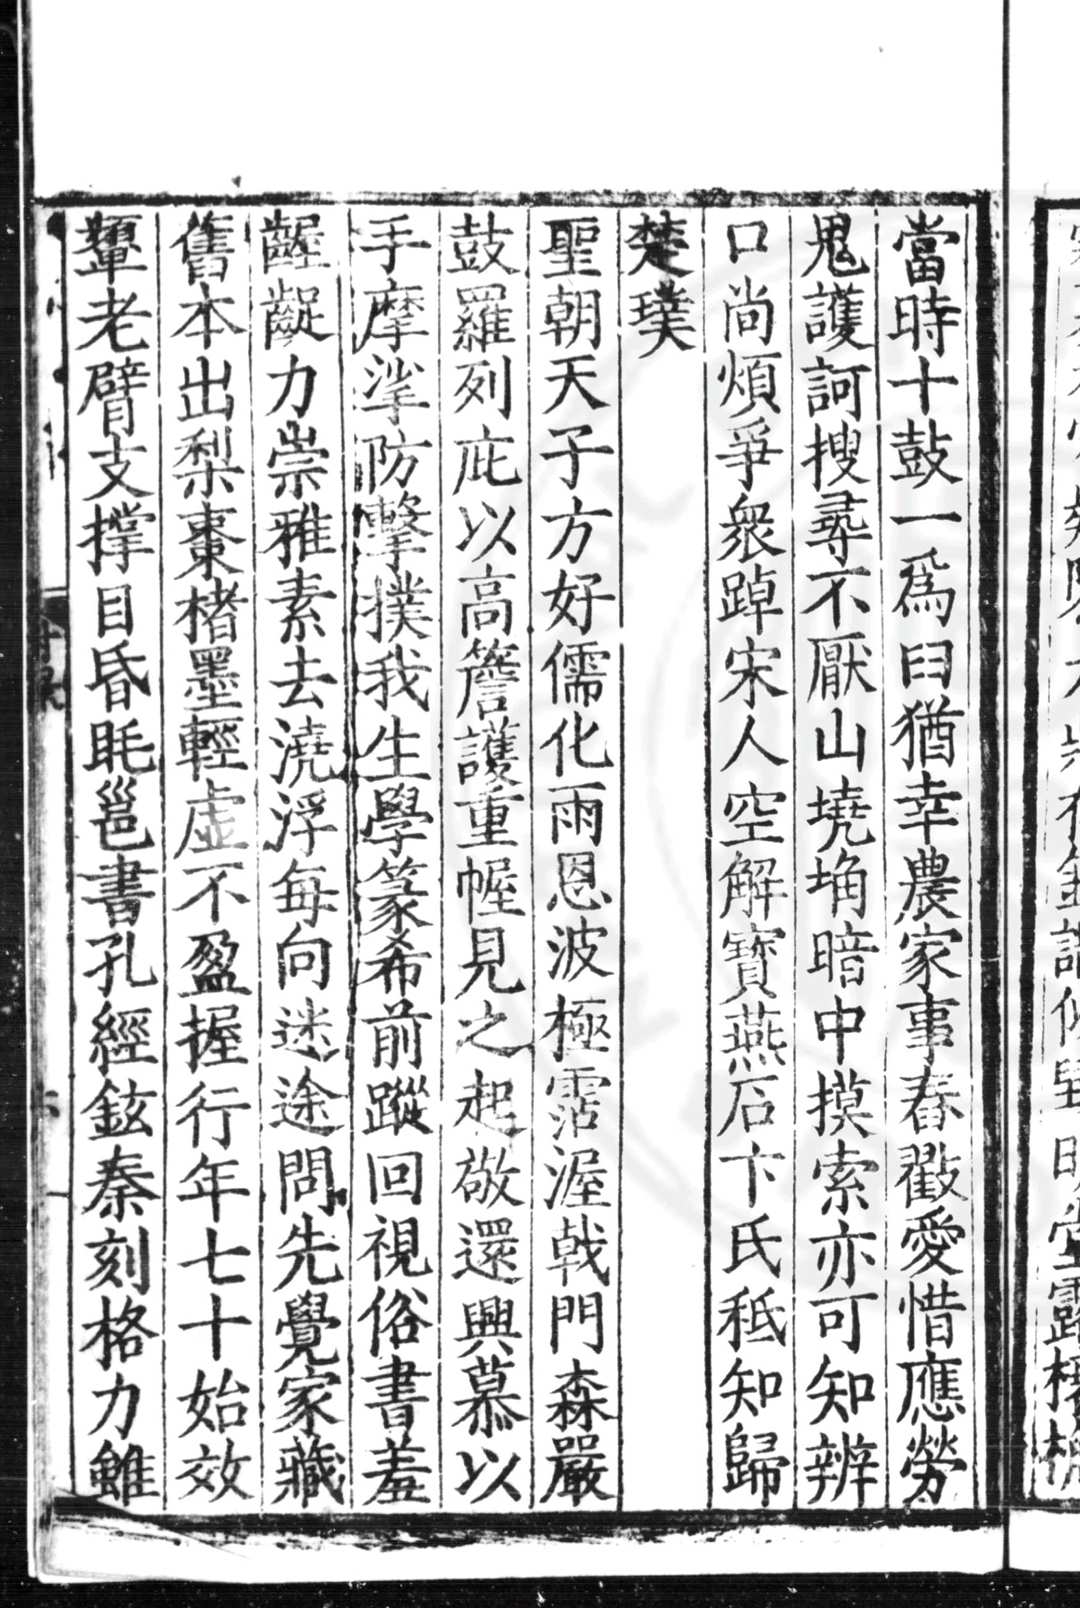 當時十鼓一爲臼猶幸農家事舂㱿愛惜應勞
鬼護訶搜尋不厭山墝埆暗中摸索亦可知辨
口尚煩爭衆踔宋人空解寶燕石卞氏秖知歸
楚璞
聖朝天子方好儒化雨恩波極霑渥戟門森嚴
鼓羅列庇以高簷護重幄見之起敬還興慕以
手摩挲防擊撲我生學篆希前蹤回視俗書羞
齷齪力崇雅素去澆浮每向迷途問先覺家藏
舊本出梨棗楮墨輕虛不盈握行年七十始效
顰老臂支撑目昏眊邕書孔經鉉秦刻格力雖